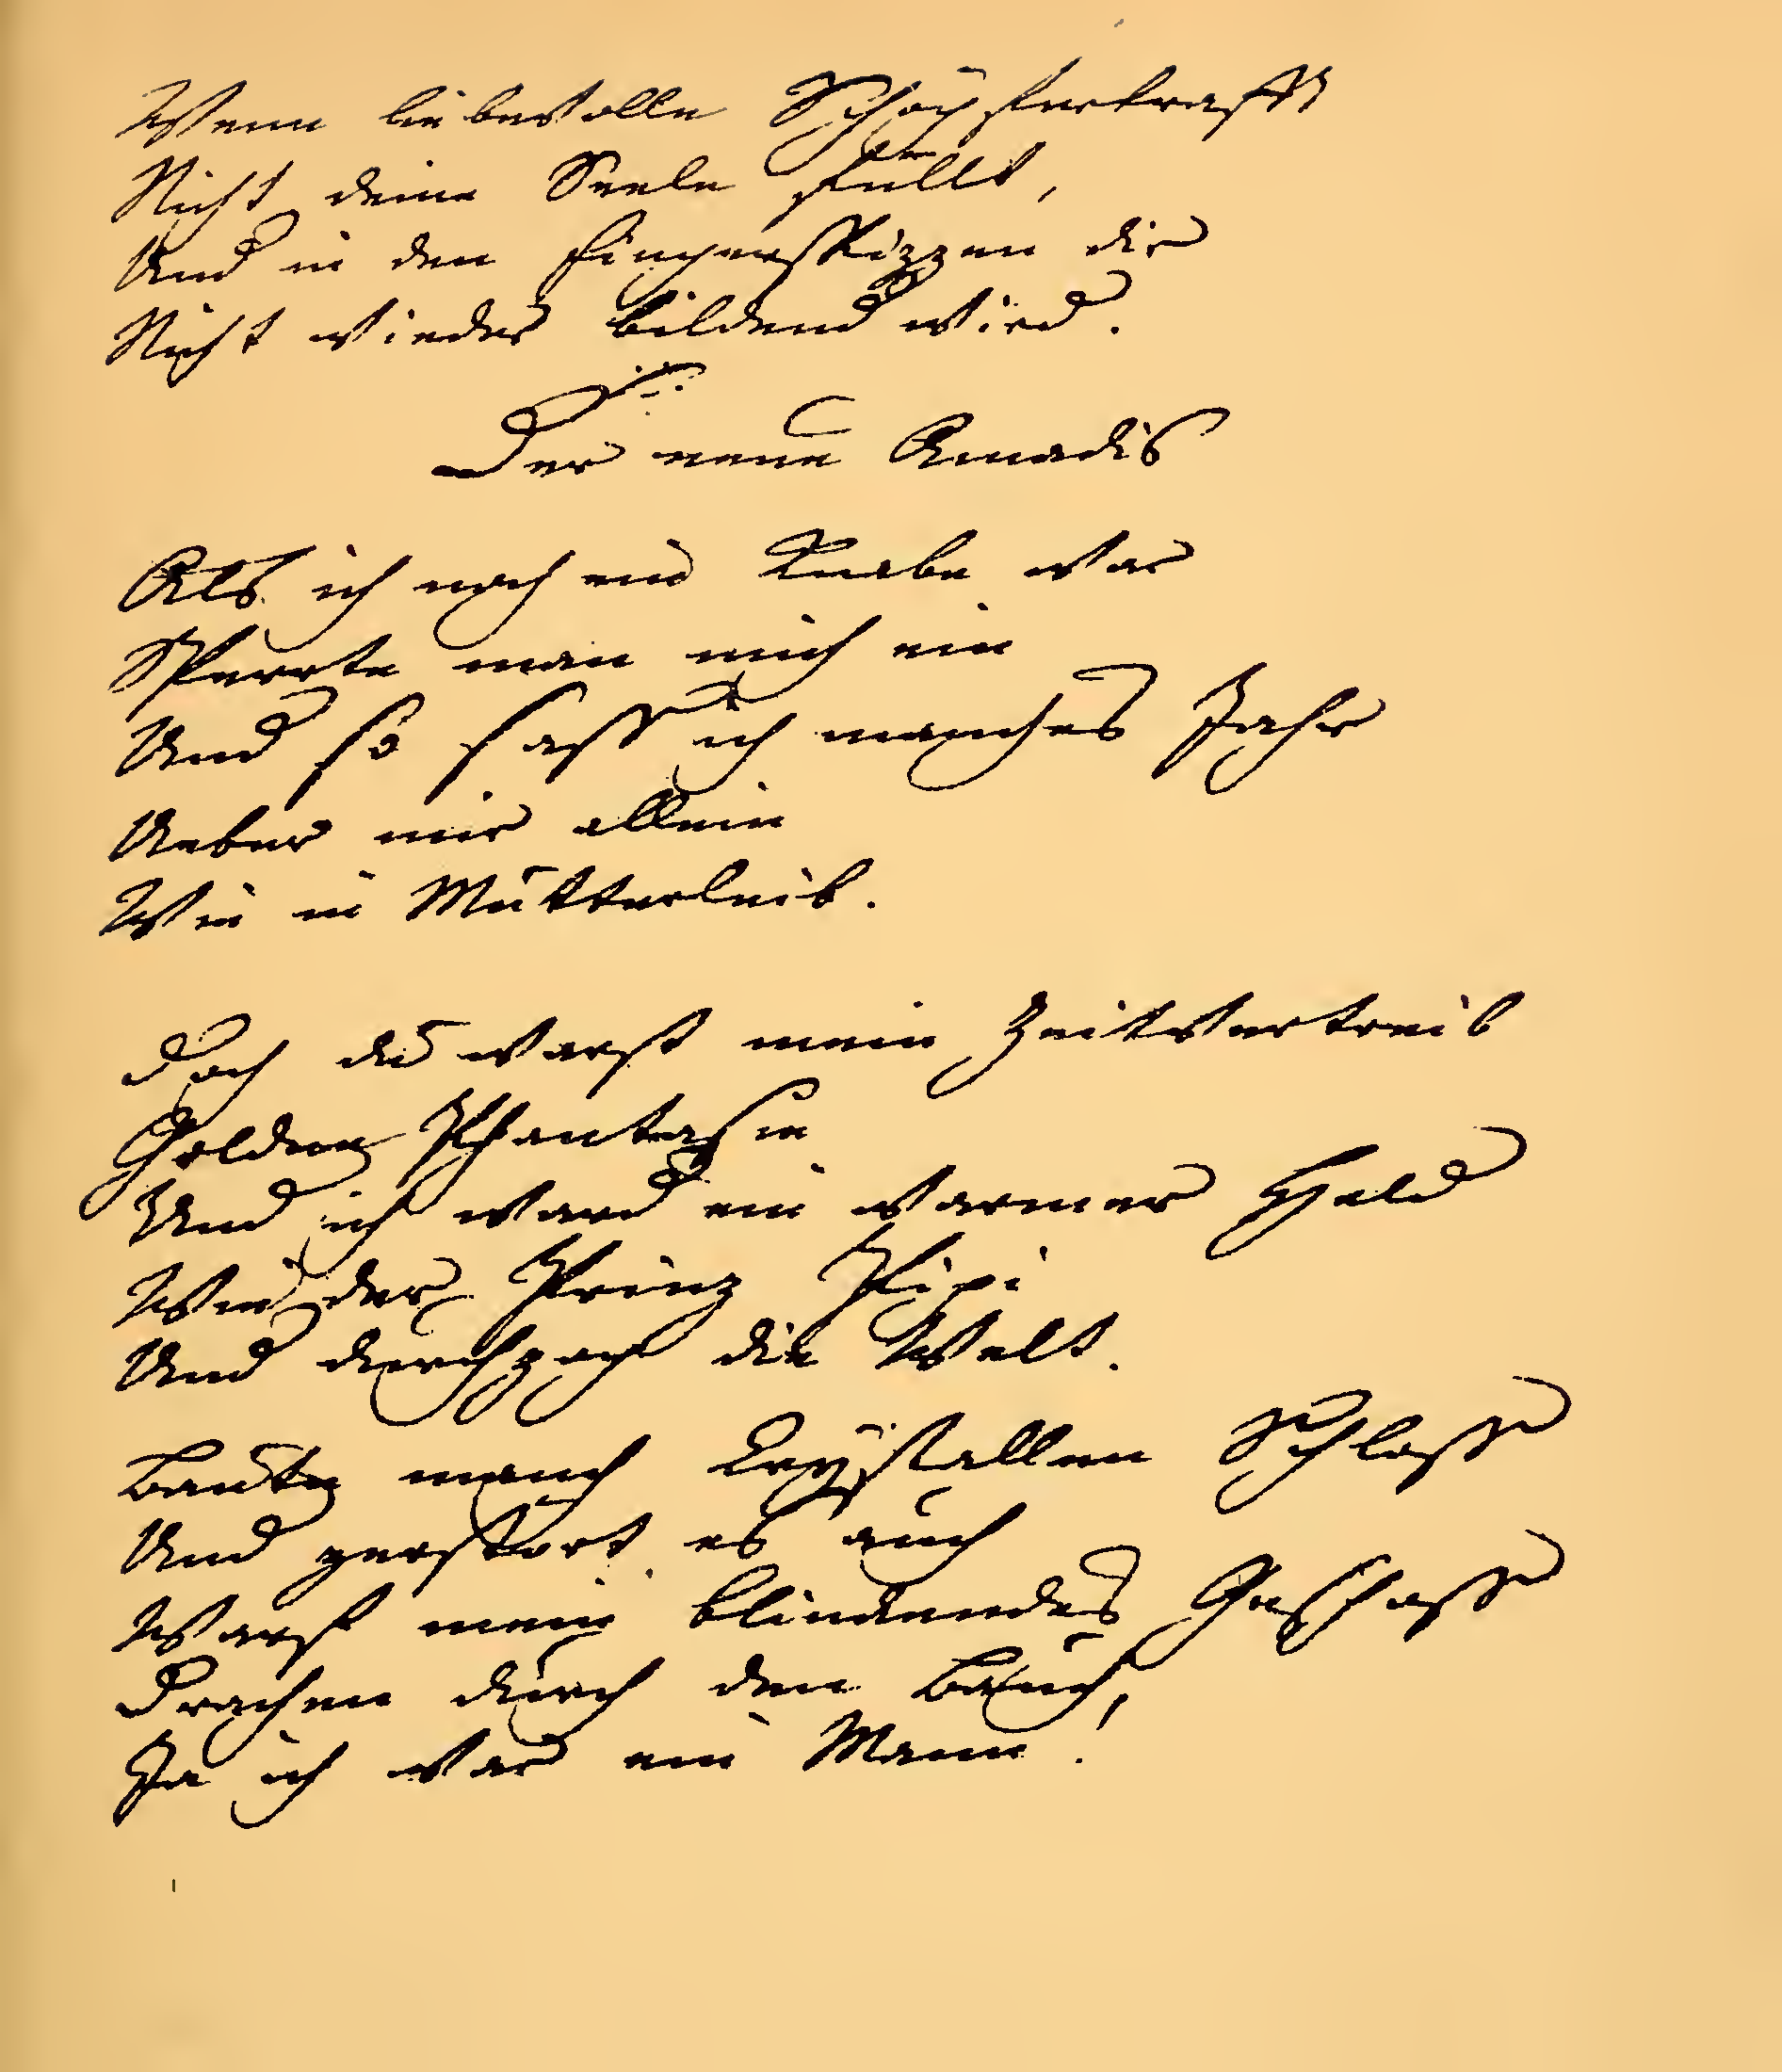 Wenn liebevolle Schöpfferkrafft
Nicht deine Seele füllt,
Und in den Fingerspizzen dir
Nicht wieder bildend wird.
Der neue Amadis
Als ich noch ein Knabe war
Sperrte man mich ein
Und so sass ich manches Jahr
Ueber mir allein
Wie in Mutterleib.
Doch du warst mein Zeitvertreib
Goldne Phantasie
Und ich ward ein warmer Held
Wie der Prinz Pipi
Und durchzog die Welt.
Baute manch Krystallen Schloss
Und zerstört es auch
Warf mein blinckendes Geschoss
Drachen durch den Bauch,
Ja ich war ein Mann!